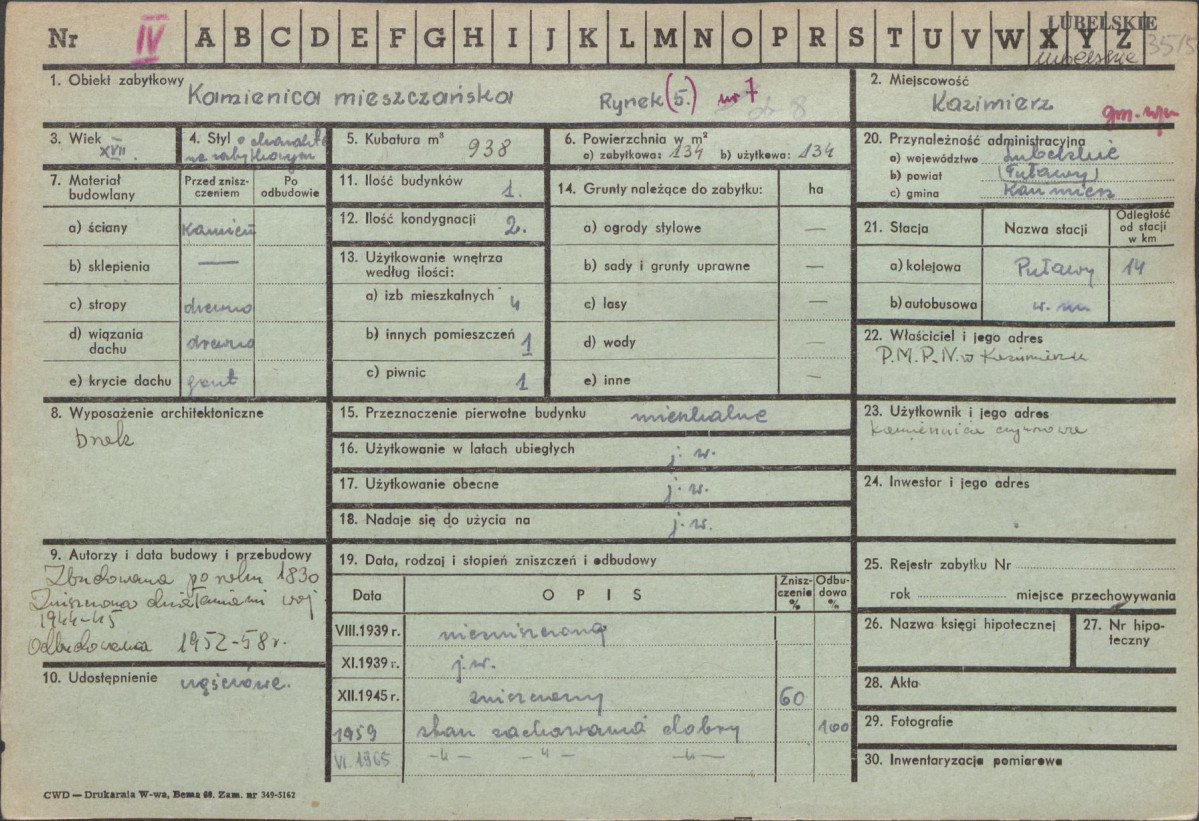 Nr IV A B C D E F G H I J K L M N O P R S T U V W X Y Z
LUBELSKIE
lubelskie
1. Obiekt zabytkowy Kamienica mieszczańska Rynek (5.) nr 7
2. Miejscowość
Kazimierz
3. Wiek
XVII
4. Styl o charakt.
zabytkowym
5. Kubatura m³ 938
6. Powierzchnia w m²
a) zabytkowa: 134 b) użytkowa: 134
7. Materiał budowlany
Przed zniszczeniem
Po odbudowie
a) ściany kamień
b) sklepienia —
c) stropy drewno
d) wiązania dachu drewno
e) krycie dachu gont
8. Wyposażenie architektoniczne
brak
9. Autorzy i data budowy i przebudowy
Zbudowana po roku 1830
Zniszczona działaniami woj.
1944-45
Odbudowana 1952-58 r.
10. Udostępnienie częściowe.
11. Ilość budynków 1.
12. Ilość kondygnacji 2.
13. Użytkowanie wnętrza
według ilości:
a) izb mieszkalnych 4
b) innych pomieszczeń 1
c) piwnic 1
14. Grunty należące do zabytku: ha
a) ogrody stylowe —
b) sady i grunty uprawne —
c) lasy —
d) wody
e) inne —
15. Przeznaczenie pierwotne budynku mieszkalne
16. Użytkowanie w latach ubiegłych j. w.
17. Użytkowanie obecne j. w.
18. Nadaje się do użycia na j. w.
19. Data, rodzaj i stopień zniszczeń i odbudowy
Data
O P I S
Zniszczenie %
Odbudowa %
VIII.1939 r. niezniszczona
XI.1939 r. j.w.
XII.1945 r. zniszczony 60
1959 stan zachowania dobry 100
VI.1965 -"- -"- -"-
20. Przynależność administracyjna
a) województwo Lubelskie
b) powiat (Puławy)
c) gmina Kazimierz
21. Stacja
Nazwa stacji
Odległość od stacji w km
a) kolejowa Puławy 14
b) autobusowa w. m
22. Właściciel i jego adres
P.M.R.N. w Kazimierzu
23. Użytkownik i jego adres
Kamienica czynszowa
24. Inwestor i jego adres
25. Rejestr zabytku Nr
rok miejsce przechowywania
26. Nazwa księgi hipotecznej
27. Nr hipoteczny
28. Akta
29. Fotografie
30. Inwentaryzacja pomiarowa
CWD — Drukarnia W-wa, Bema 60. Zam. nr 349-5162